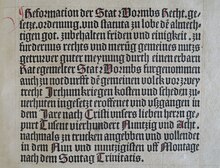 Reformation der Stat Wormbs Recht, ge-
setze, ordenung, und statuta zu lobe dē almech-
tigen got. zubehalten friden und einigkeit, zu
furdernus rechts und merūg gemeins nutzs
getruwer guter meynung durch einen erbarn
Rat gemelter Stat Wormbs furgenommen
auch zu nordurfft dē gemeinen volk vor zwy-
tracht Irthum kriegen kosten und scheden zu-
uerhuten ingesetzt eroffenet und ußgangen in
dem Jare nach Cristi unsers lieben herrn ge-
purt Tusent vierhundert Nuntzig und Acht
nachmals zu trucken angeben und vollendet
in dem Nun und nuntzigisten uff Montag
nach dem Sontag Trinitatis.